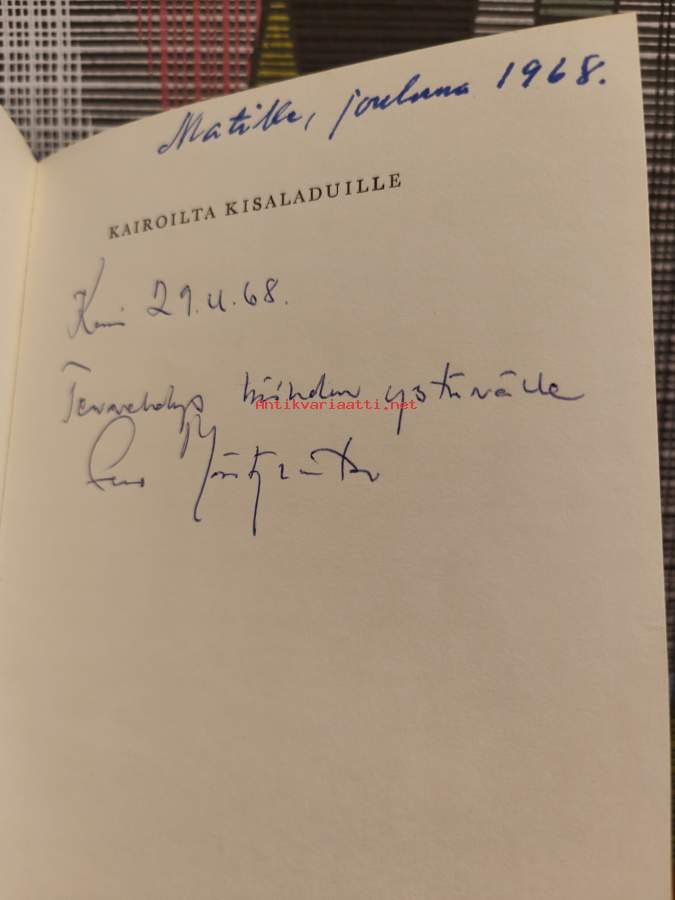 Matille, jouluna 1968.
KAIROILTA KISALADUILLE
Kemi 29.11.68.
Tervehdys hiihdon ystävälle
Antikvariaatti.net